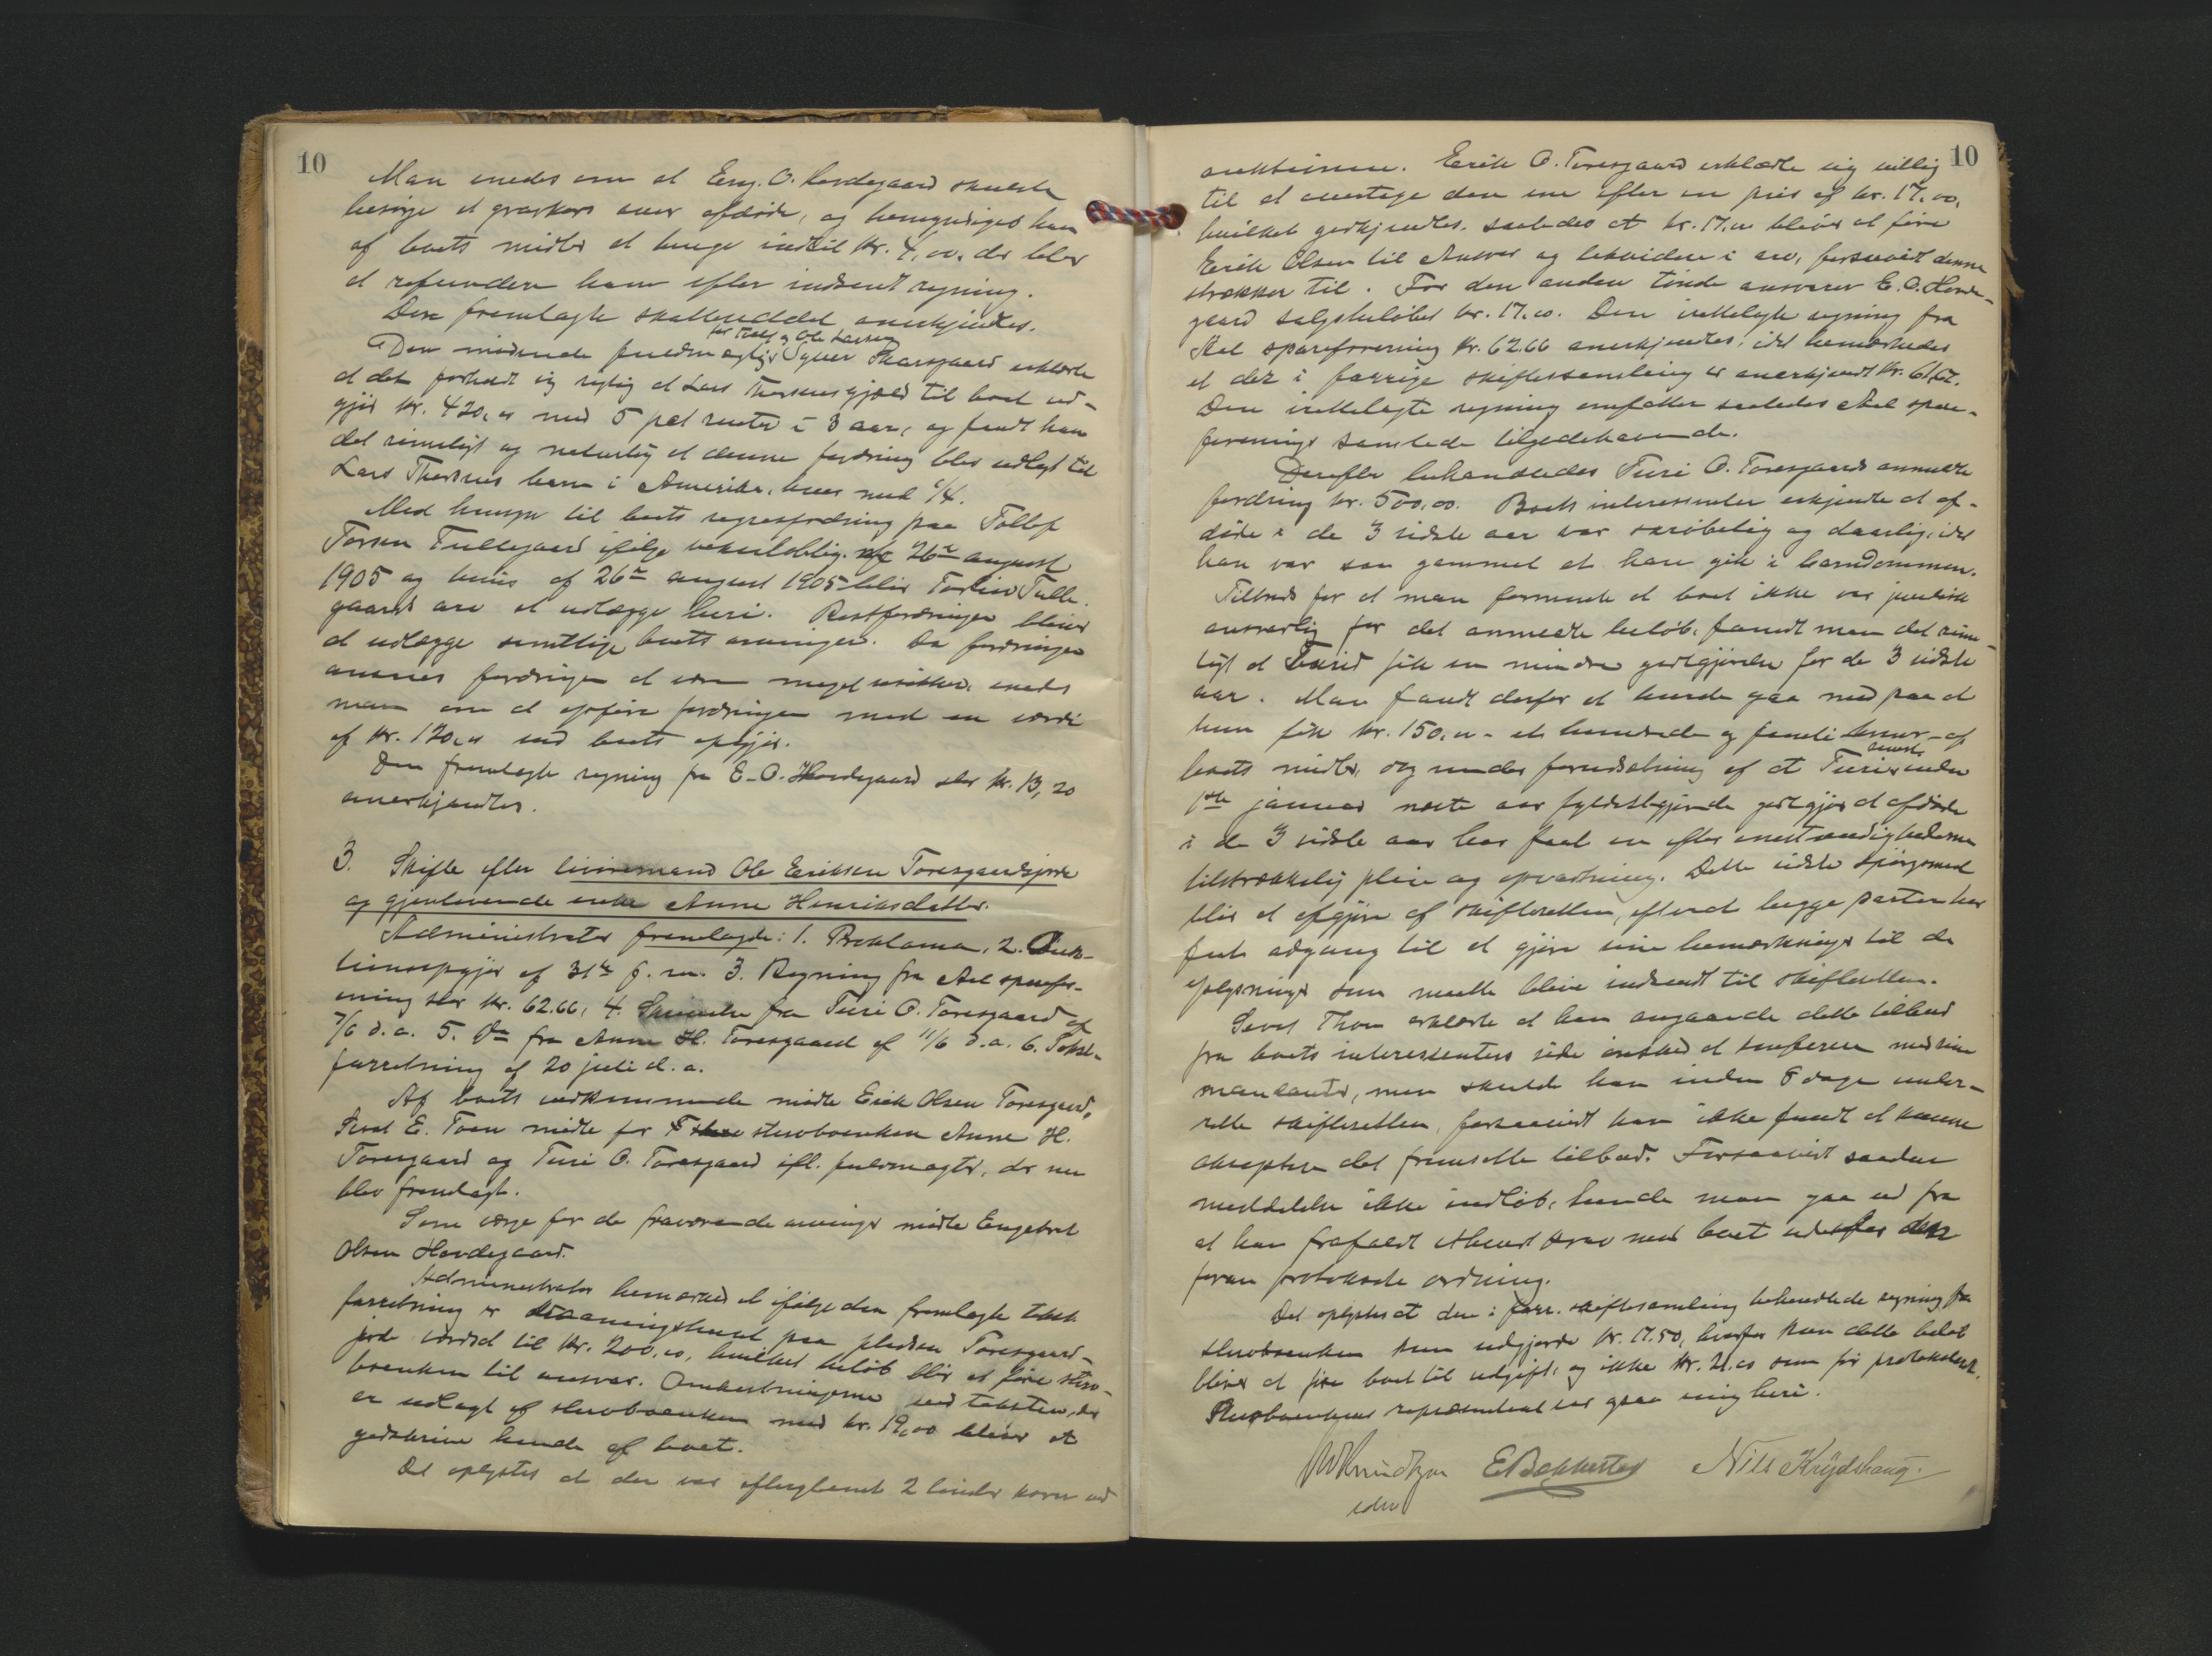 10
Man enedes om at Eng. O. Hovdegaard skulde
besørge et gravkors over afdøde, og bemyndiges han
af boets midler at bruge indtil kr. 4,00. der blev
at refundere ham efter indsendt regning.
Den fremlagte skatteseddel anerkjendtes.
for Tholf og Ole Larsen
Den mødende fuldmægtig Syver Skarsgaard erklærte
at det forholdt sig rigtig at Lars Thorsens gjæld til boet ud-
gjør kr. 420,00 med 5 pct renter i 3 aar, og fandt han
det rimeligt og naturlig at denne fordring blev udlagt til
Lars Thorsens barn i Amerika, hver med 1/4.
Med hensyn til boets regresfordring paa Tollef
Torsen Tullegaard ifølge vekselobligation af 26de august
1905 og bevis af 26de august 1905 blir Torleiv Tulle-
gaards arv at udlægge heri. Restfordringen bliver
at udlægge samtlige boets arvinger. Da fordringen
ansees fordringen at være meget usikker, enedes
man om at opføre fordringen med en værdi
af kr. 120,00 ved boets opgjør.
Den fremlagte regning fra E. O. Hovdegaard stor kr. 13,20
anerkjendtes.
3. Skifte efter livøresmand Ole Eriksen Toresgaardsjorde
og gjenlevende enke Anne Henriksdatter.
Administrator fremlagde: 1. Proklama, 2. Auk-
tionsopgjør af 31te f. m. 3. Regning fra Aal sparefor-
ening stor kr. 62.66, 4. Skrivelse fra Turi O. Toresgaard af
7/6 d. a. 5. Do fra Anne H. Toresgaard af 11/6 d. a. 6. Takst-
forretning af 20 juli d. a.
Af boets vedkommende mødte Erik Olsen Toresgaard,
Sevat E. Toen mødte for stervboenken Anne H.
Toresgaard og Turi O. Toresgaard ifl. fuldmagter, der nu
blev fremlagt.
Som verge for de fraværende arvinger mødte Engebret
Olsen Hovdegaard.
Administrator bemærked at ifølge den fremlagte takst
forretning er vaaningshuset paa pladsen Toresgaard-
jorde værdsat til kr. 200,00, hvilket beløb blir at føre sterv-
boenken til ansvar. Omkostningerne ved taksten, der
er udlagt af stervboenken med kr. 19,00 bliver at
godskrive hende af boet.
Det oplystes at der var efterglemt 2 tønder korn ved
10
auktionen. Erik O. Toresgaard erklærte sig villig
til at overtage den ene efter en pris af kr. 17,00,
hvilket godkjendtes, saaledes at kr. 17,00 bliver at føre
Erik Olsen til Ansvar og likvidere i arv, forsaavidt denne
strækker til. For den anden tønde ansvarer E. O. Hovde-
gaard salgsbeløbet kr. 17,00. Den irettelagte regning fra
Aal spareforening kr. 62.66 anerkjendtes; idet bemærkedes
at der i forrige skiftesamling er anerkjendt kr. 61,62.
Den irettelagte regning omfatter saaledes Aal spare-
forenings samlede tilgodehavende.
Derefter behandledes Turi O. Toresgaards anmeldte
fordring kr. 500,00. Boets interessenter erkjendte at af-
døde i de 3 sidste aar var skrøbelig og daarlig, idet
han var saa gammel at han gik i barndommen.
Tiltrods for at man formente at boet ikke var juridisk
ansvarlig for det anmeldte beløb, fandt man det rime-
ligt at Turid fik en mindre godtgjørelse for de 3 sidste
aar. Man fandt derfor at kunde gaa med paa at
hun fik kr. 150,00 - et hundrede og femti kroner - af
boets midler, dog under forudsætning af at Turi senest inden
1ste januar næste aar fyldestgjørende godtgjør at afdøde
i de 3 sidste aar har faat en efter omstændighederne
tilstrækkelig pleie og opvartning. Dette sidste spørgsmaal
blir at afgjøre af skifteretten, efterat begge parter har
faat adgang til at gjøre sine bemærkninger til de
oplysninger som maatte blive indsendt til skifteretten.
Sevat Thoen erklærte at han angaaende dette tilbud
fra boets interessenters side ønsked at konferere med sine
mandanter, men skulde han inden 8 dage under-
rette skifteretten, forsaavidt han ikke fandt at kunne
akseptere det fremsatte tilbud. Forsaavidt saadan
meddelelse ikke indløb, kunde man gaa ud fra
at han frafaldt ethvert krav mod boet udenfor den
foran protokolerte ordning.
Det oplystes at den i forr. skiftesamling behandlede regning fra
stervboenken kun udgjorde kr. 17.50, hvorfor kun dette beløb
bliver at føre boet til udgift, og ikke kr. 21.00 som før protokoleret.
Stervboenkens repræsentant var ogsaa enig heri.
E Bakkestad Nils Krydshaug.